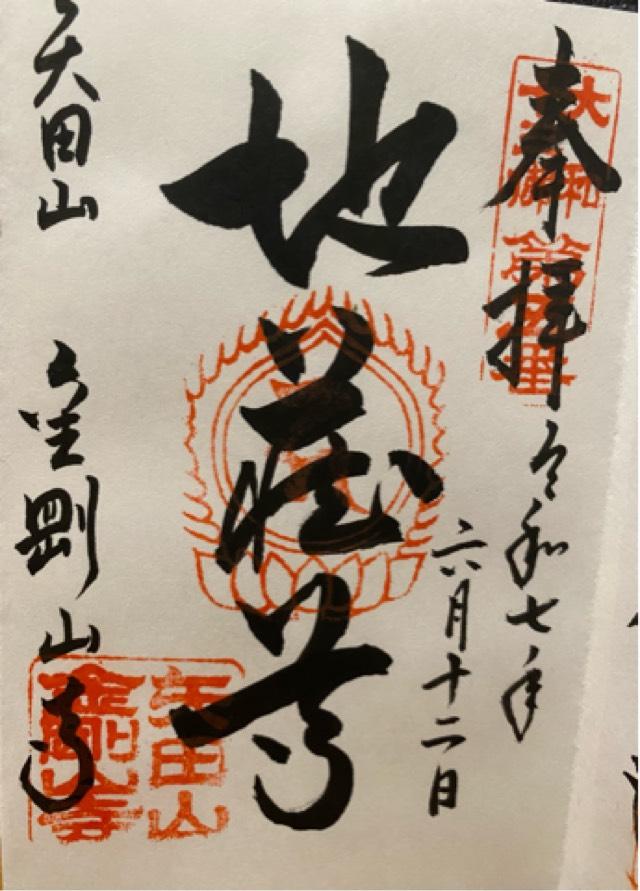 奉拝
令和七年
六月十二日
地蔵尊
矢田山
金剛山寺
大和
矢田山
金剛山寺